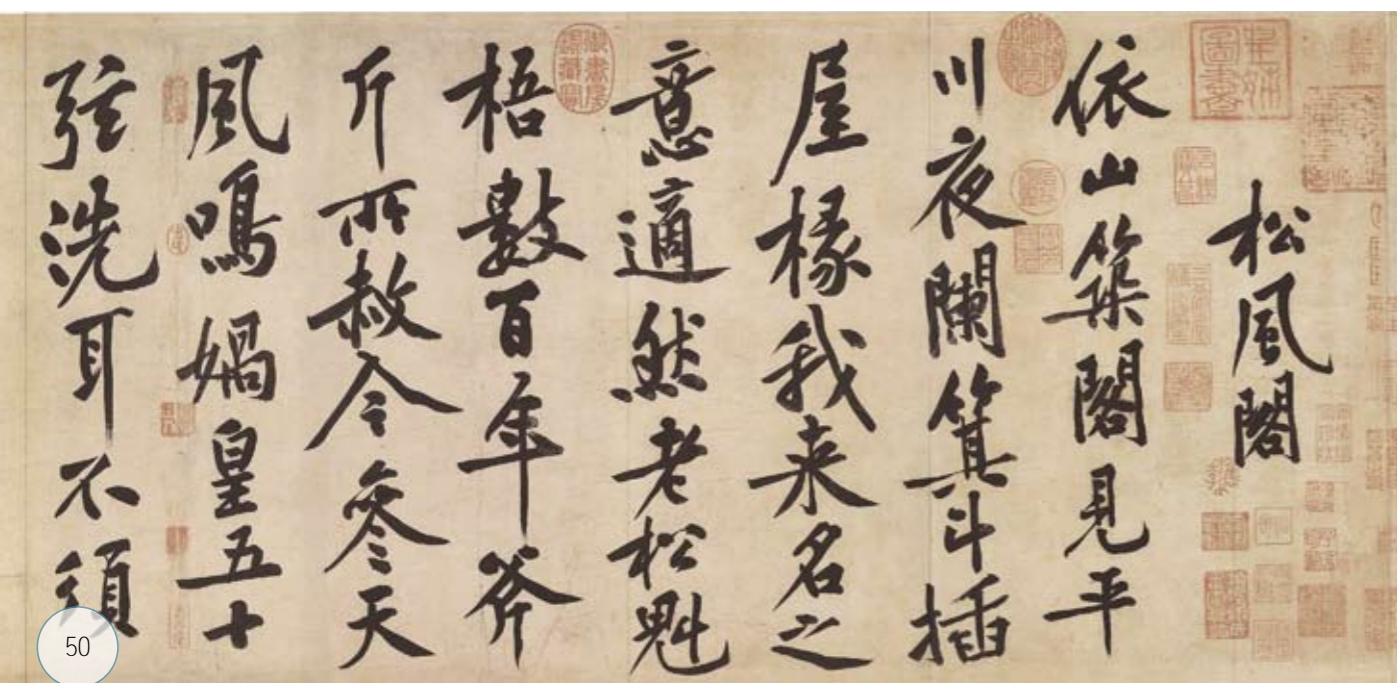 松風閣
皇姊
圖書
依山築閣見平
川夜闌箕斗插
屋椽我来名之
意適然老松魁
梧數百年斧
斤所赦今參天
風鳴媧皇五十
弦洗耳不須
50